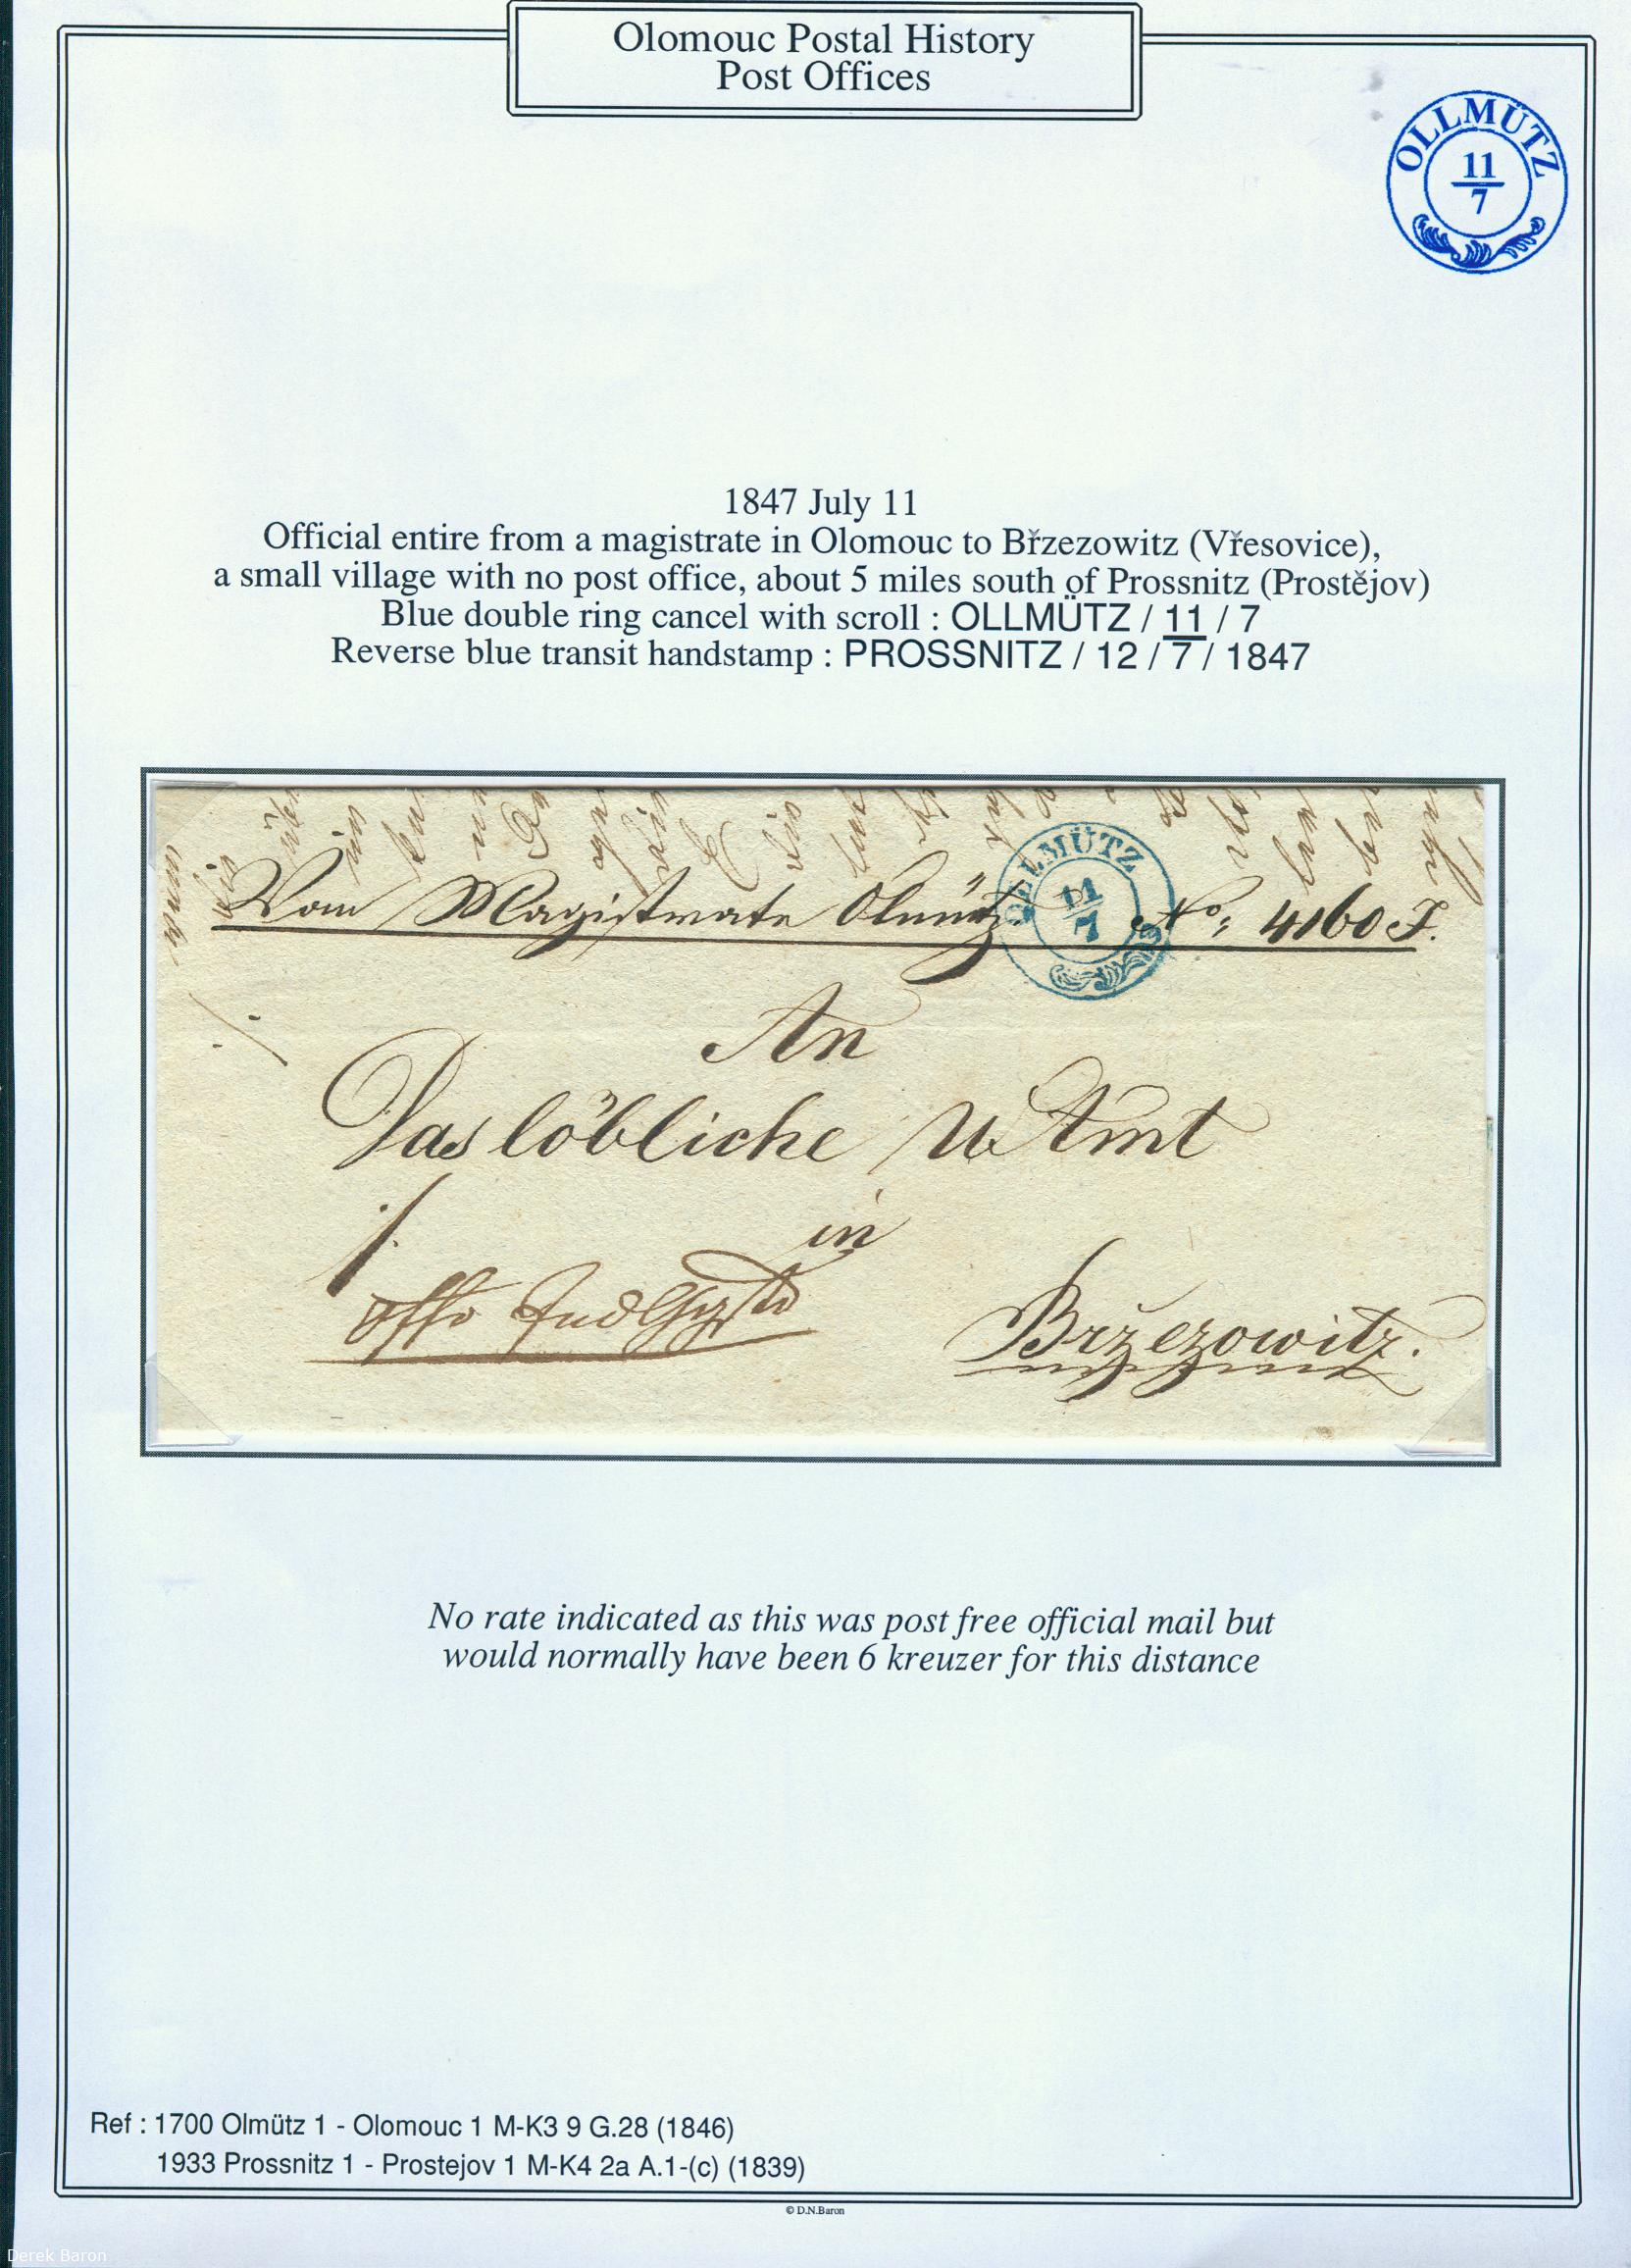 Olomouc Postal History
Post Offices
OLLMÜTZ
11
7
1847 July 11
Official entire from a magistrate in Olomouc to Břzezowitz (Vřesovice),
a small village with no post office, about 5 miles south of Prossnitz (Prostějov)
Blue double ring cancel with scroll : OLLMÜTZ / 11 / 7
Reverse blue transit handstamp : PROSSNITZ / 12 / 7 / 1847
Vom Magistrate Olmütz
No: 4160 J.
OLLMÜTZ
11
7
An
Das löbliche Amt
in
Bržezowitz.
No rate indicated as this was post free official mail but
would normally have been 6 kreuzer for this distance
Ref : 1700 Olmütz 1 - Olomouc 1 M-K3 9 G.28 (1846)
1933 Prossnitz 1 - Prostejov 1 M-K4 2a A.1-(c) (1839)
© D.N.Baron
Derek Baron